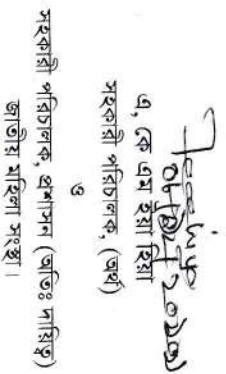 এ, কে এম ইয়া হিয়া
সহকারী পরিচালক, (অর্থ)
ও
সহকারী পরিচালক, প্রশাসন (অতিঃ দায়িত্ব)
জাতীয় মহিলা সংস্থা।